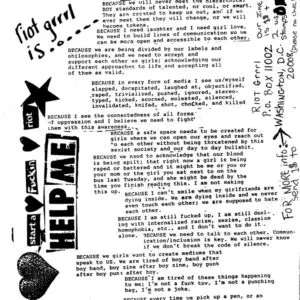 riot grrrl
is.......
BECAUSE we will NEVER meet the hierarchical
BOY standards of talented, or cool, or smart.
They are created to keep us out, and if we
ever meet them they will change, or we will
become tokens.
BECAUSE I need laughter and I need girl love.
We need to build lines of communication so we
can be more open and accessible to each other.
BECAUSE we are being divided by our labels and
philosophies, and we need to accept and
support each other as girls; acknowledging our
different approaches to life and accepting all
of them as valid.
BECAUSE in every form of media I see us/myself
slapped, decapitated, laughed at, objectified,
raped, trivialized, pushed, ignored, stereo-
typed, kicked, scorned, molested, silenced,
invalidated, knifed, shot, choked, and killed
BECAUSE I see the connectedness of all forms
of oppression and I believe we need to fight
them with this awareness.
BECAUSE a safe space needs to be created for
girls where we can open our eyes and reach out
to each other without being threatened by this
sexist society and our day to day bullshit.
BECAUSE we need to acknowledge that our blood
is being spilt; that right now a girl is being
raped or battered and it might be me or you or
your mom or the girl you sat next to on the
bus last Tuesday, and she might be dead by the
time you finish reading this. I am not making
this up.
BECAUSE I can't smile when my girlfriends are
dying inside. We are dying inside and we never
even touch each other; we are supposed to hate
each other.
BECAUSE I am still fucked up, I am still deal-
ing with internalized racism, sexism, classism
homophobia, etc., and I don't want to do it
alone.
BECAUSE we need to talk to each other. Commun-
ication/inclusion is key. We will never know
if we don't break the code of silence.
BECAUSE we girls want to create mediums that
speak to US. We are tired of boy band after
boy band, boy zine after boy zine, boy punk
after boy punk after boy.
BECAUSE I am tired of these things happening
to me; I'm not a fuck toy. I'm not a punching
bag, I'm not a joke.
BECAUSE every time we pick up a pen, or an
start a fuckin riot
HELP ME
FOR MORE info:
RIOT Grrrl
P.O. BOX 11002
WASHINGTON,
20008